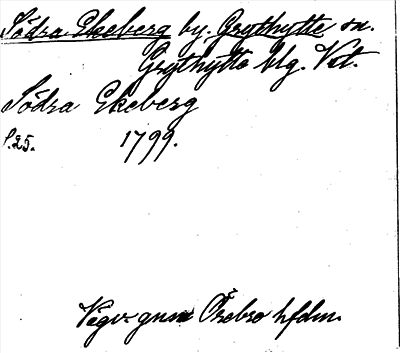 Södra Ekeberg by. Grythytte sn.
Grythytte blg. Vst.
Södra Ekeberg
S.25. 1799.
Vägv. gnm Örebro hfdm.